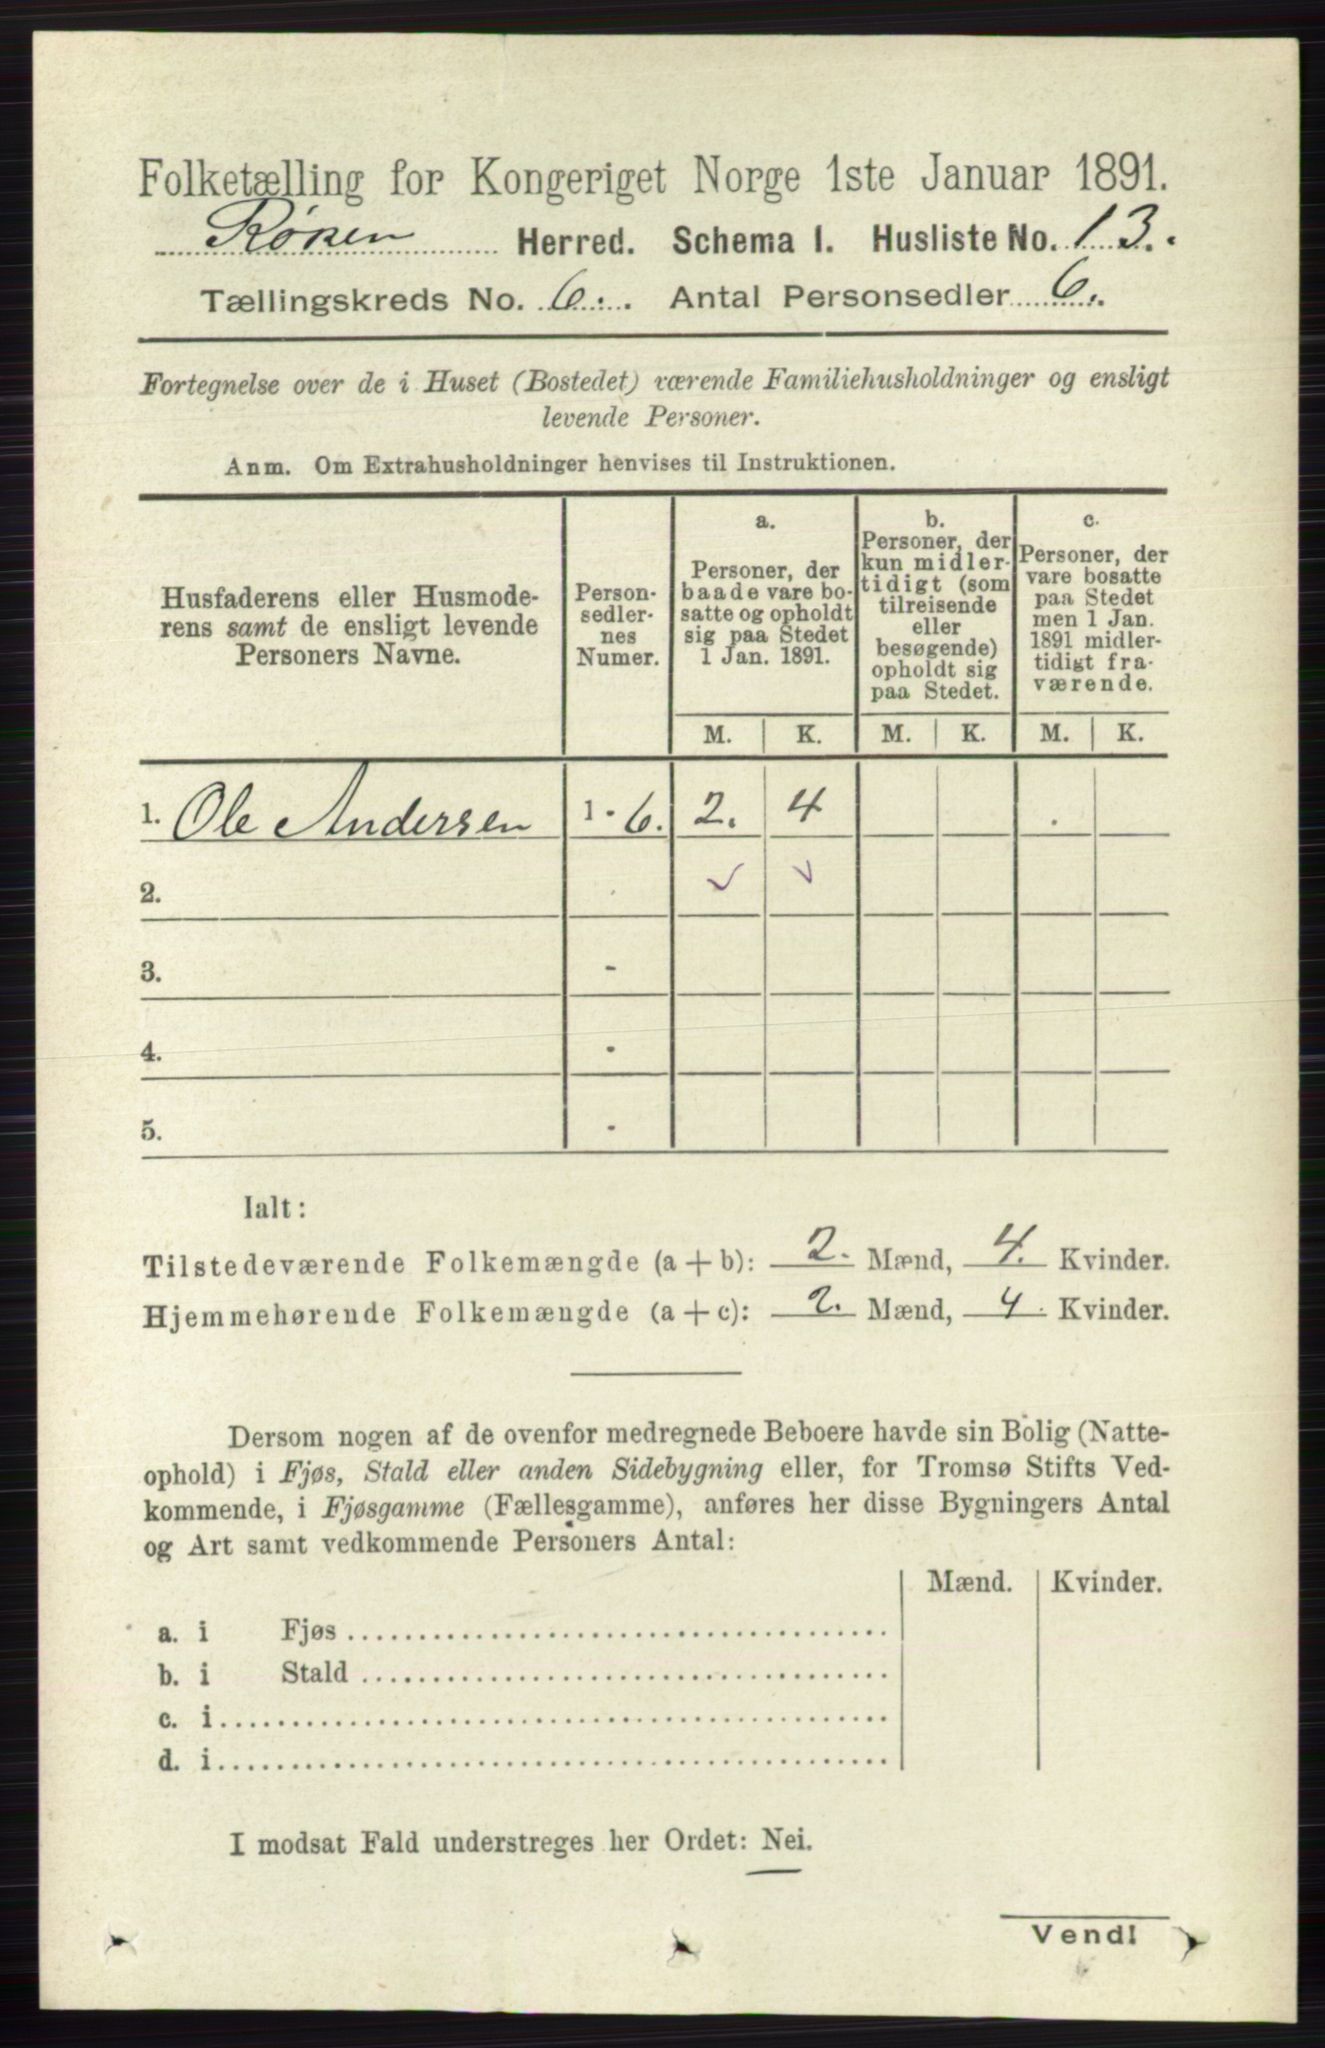 Folketælling for Kongeriget Norge 1ste Januar 1891.
Røken Herred. Schema I. Husliste No. 13.
Tællingskreds No. 6. Antal Personsedler 6.
Fortegnelse over de i Huset (Bostedet) værende Familiehusholdninger og ensligt
levende Personer.
Anm. Om Extrahusholdninger henvises til Instruktionen.
Husfaderens eller Husmode-
rens samt de ensligt levende
Personers Navne.
Person-
sedler-
nes
Numer.
a.
Personer, der
baade vare bo-
satte og opholdt
sig paa Stedet
1 Jan. 1891.
b.
Personer, der
kun midler-
tidigt (som
tilreisende
eller
besøgende)
opholdt sig
paa Stedet.
c.
Personer, der
vare bosatte
paa Stedet
men 1 Jan.
1891 midler-
tidigt fra-
værende.
M. K. M. K. M. K.
1. Ole Andersen 1 - 6. 2. 4
2.
3. -
4. -
5. -
Ialt:
Tilstedeværende Folkemængde (a + b): 2. Mænd, 4. Kvinder.
Hjemmehørende Folkemængde (a + c): 2. Mænd, 4. Kvinder.
Dersom nogen af de ovenfor medregnede Beboere havde sin Bolig (Natte-
ophold) i Fjøs, Stald eller anden Sidebygning eller, for Tromsø Stifts Ved-
kommende, i Fjøsgamme (Fællesgamme), anføres her disse Bygningers Antal
og Art samt vedkommende Personers Antal:
Mænd. Kvinder.
a. i Fjøs
b. i Stald
c. i
d. i
I modsat Fald understreges her Ordet: Nei.
Vend!